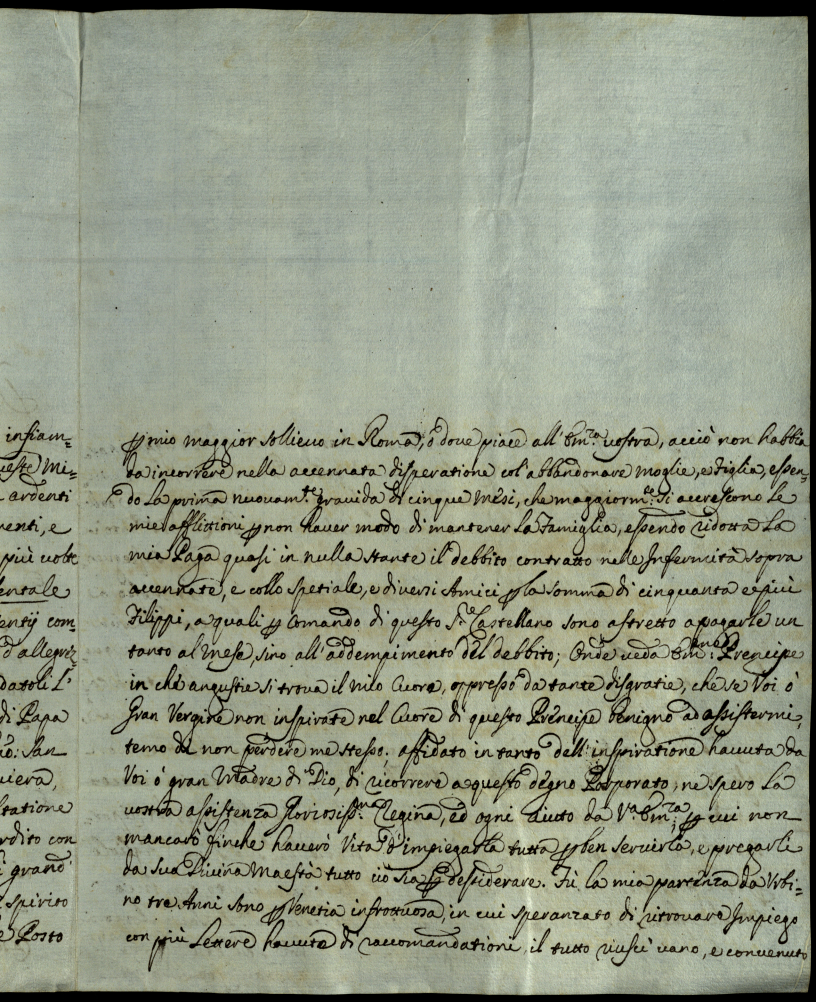 infiam=
ueste Mi=
ardenti
uenti, e
più uolte
dentale
entij com=
d'allegrez=
datoli l'
di Papa
San
uiera,
tatione
rdito con
grand'
spirito
è Posto
p mio maggior sollieuo in Roma, ò doue piace all'Em.za uostra, acciò non habbia
da incorrere nella accennata disperatione col'abbandonare Moglie, e Figlia, essen=
do la prima nuouam.te grauida di cinque Mesi, che maggiorm.te si accrescono le
mie afflittioni p non hauer modo di mantener la Famiglia, essendo ridotta la
mia Paga quasi in nulla stante il debbito contratto nelle Infermità sopra
accennate, e collo spetiale, e diuersi Amici p la somma di cinquanta e più
Filippi, a quali p Comando di questo S.r Castellano sono astretto a pagarle un
tanto al Mese, sino all'addempimento del debbito; Onde ueda Em.mo Prencipe
in che angustie si troua il mio Cuore, oppresso da tante disgratie, che se Voi ò
Gran Vergine non inspirate nel Cuore di questo Prencipe benigno ad assistermi,
temo di non perdere me stesso; affidato in tanto dell'inspiratione hauuta da
Voi ò gran Madre di Dio, di ricorrere a questo degno Porporato, ne spero la
uostra assistenza Gloriosiss.ma Regina, ed ogni aiuto da V.a Em.za, p cui non
mancarò finche hauerò Vita d'impiegarla tutta p ben seruirla, e pregarli
da Sua Diuina Maestà tutto ciò sia p dessiderare. Fù la mia partenza da Vrbi=
no tre Anni sono p Venetia infrottuosa, in cui speranzato di ritrouare Impiego
con più Lettere hauute di raccomandationi, il tutto riuscì uano, e conuenuto